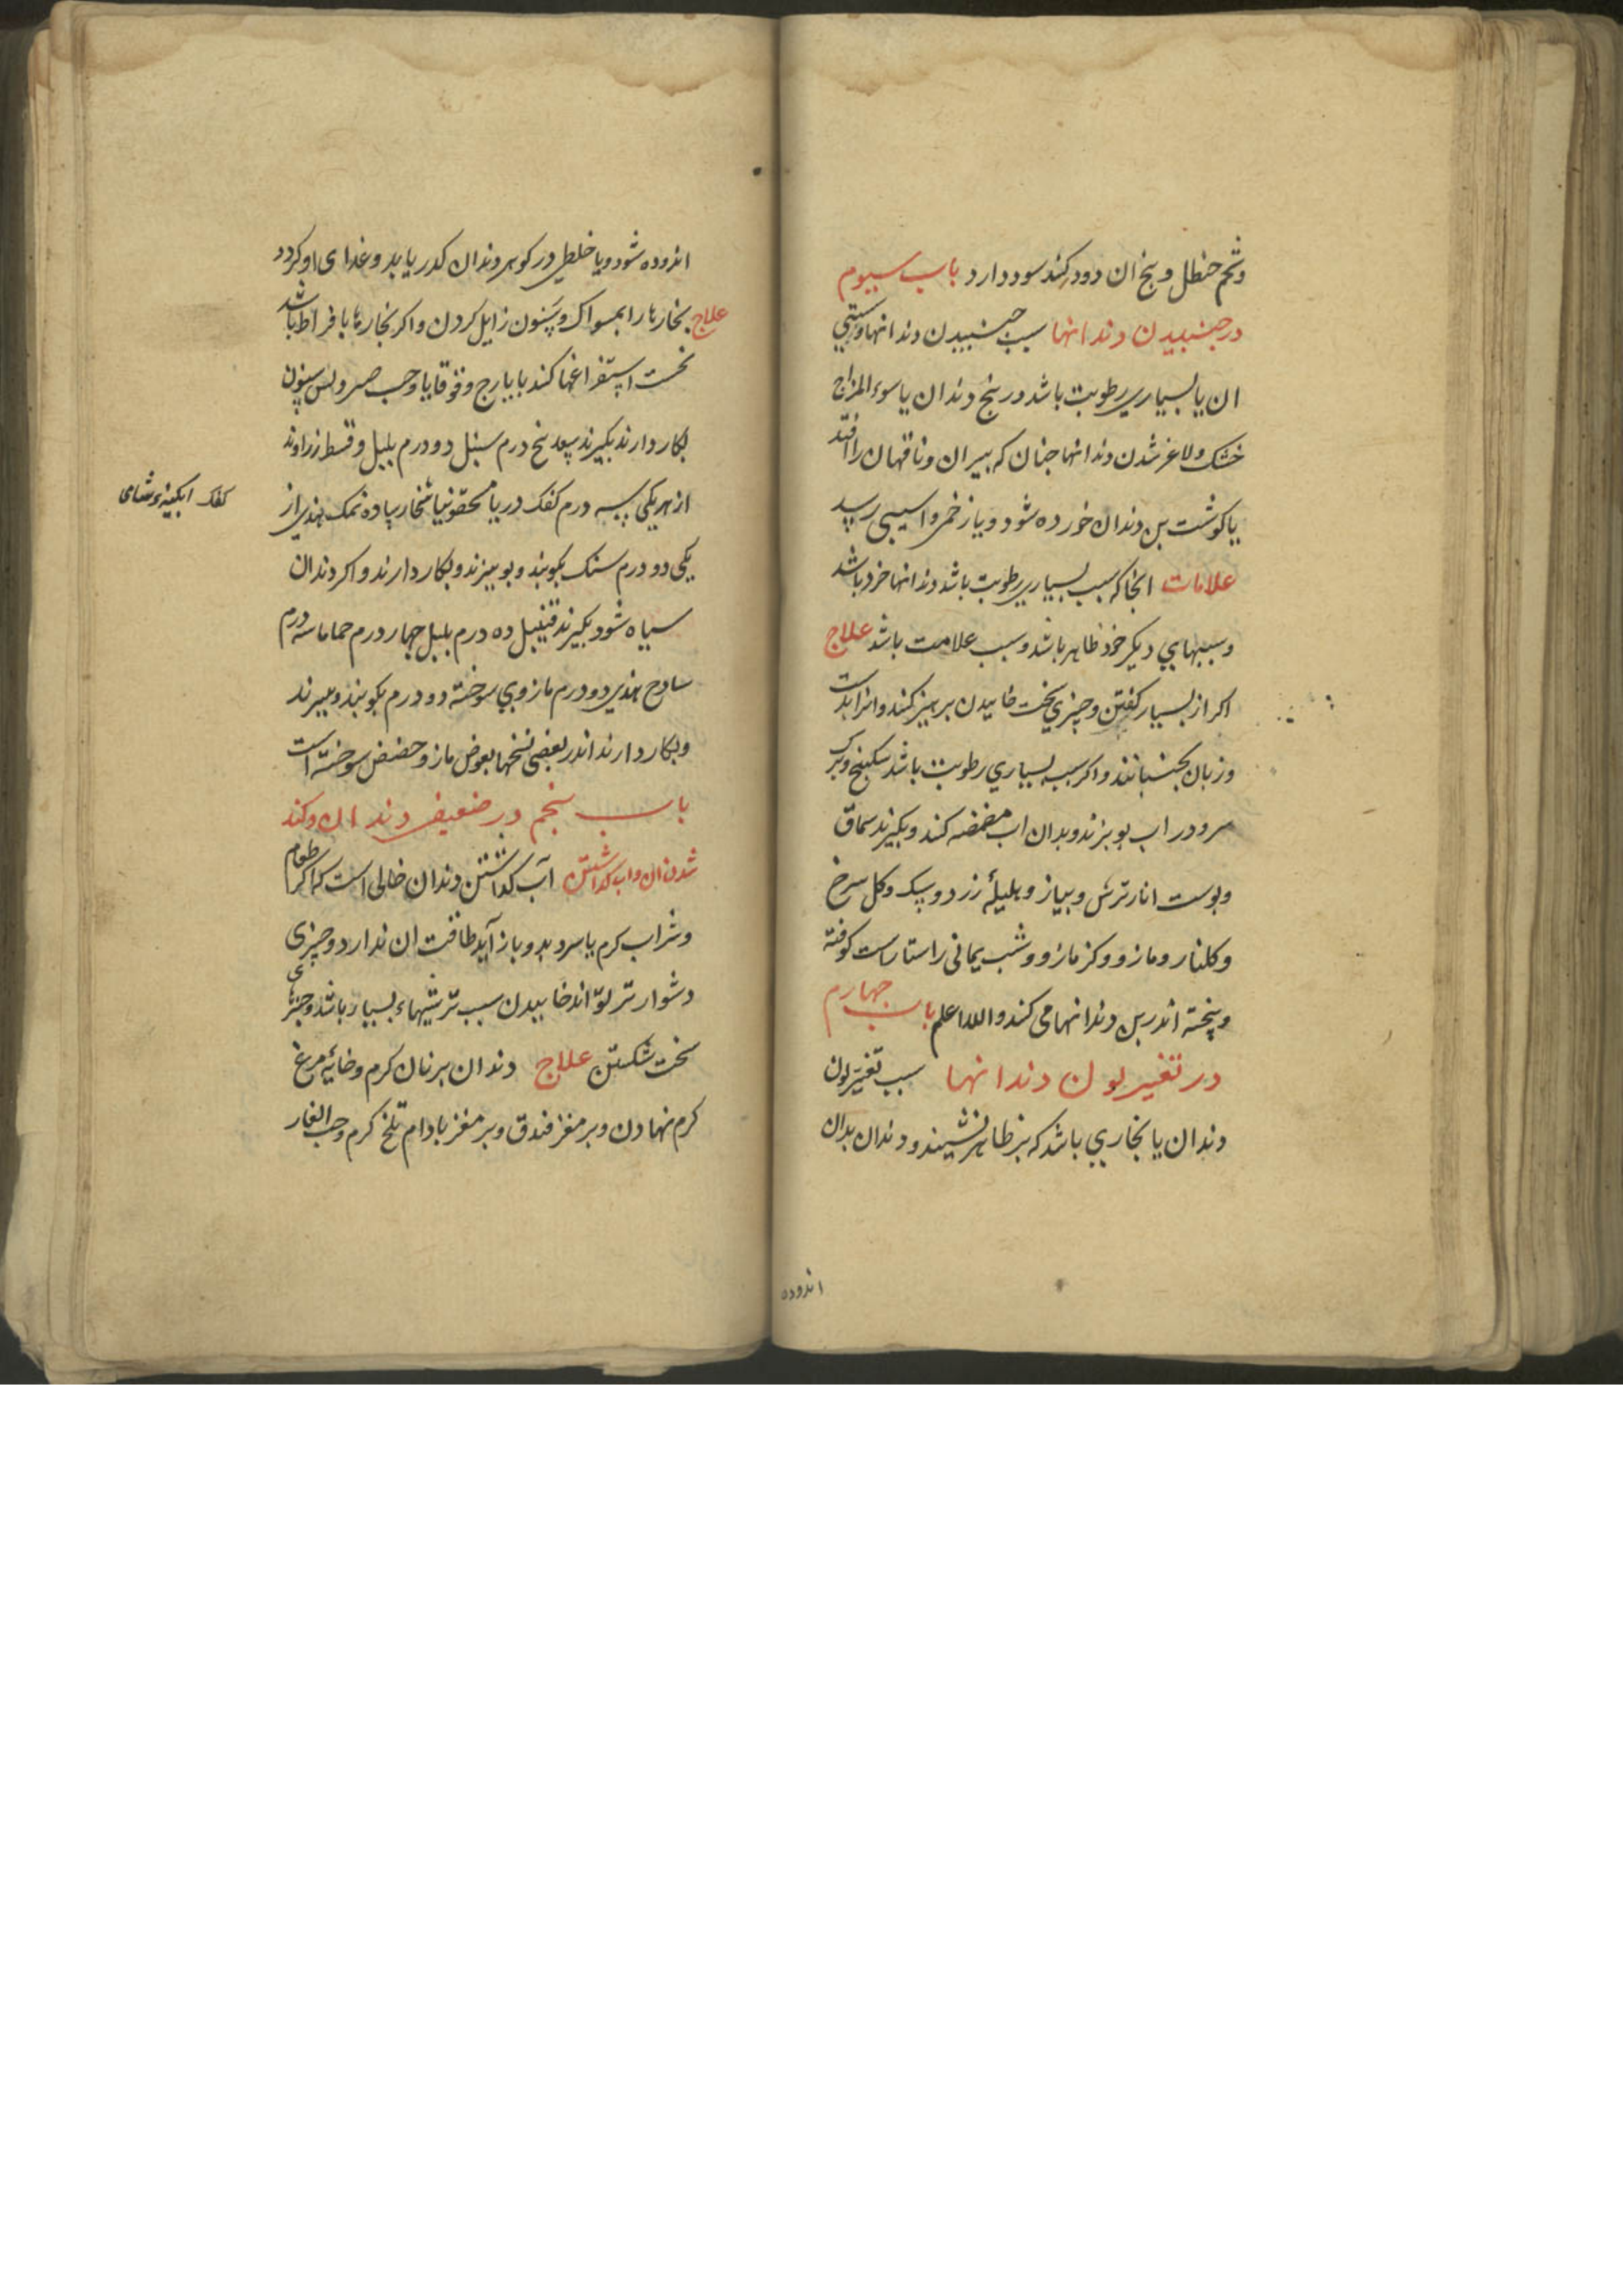 وتخم حنظل وبیخ ان دود کند سود دارد باب سیوم
در جنبیدن دندانها سبب جنبیدن دندانها وسستی
ان یا بسیاری رطوبت باشد در بیخ دندان یا سوء المزاج
خشک ولاغر شدن دندانها جنان که بیران وناقهان را افتد
یا کوشت بن دندان خورده شود ویا زخمی واسیبی رسد
علامات انجا که سبب بسیاری رطوبت باشد دندانها خرد باشد
وسببهای دیکر خود ظاهر باشد وسبب علامت باشد علاج
اکر از بسیار کفتن وجیزی سخت خاییدن برهیز کنند وانرا بدست
وزبان بجنبانند واکر سبب بسیاری رطوبت باشد سکبینج وبرک
مرو در اب بوبزند وبدان اب مضمضه کند وبکیرند سماق
وبوست انار ترش وبیاز وهلیلۀ زرد وسک وکل سرخ
وکلنار ومازو وکزمازو وشب یمانی راستاراست کوفته
وبیخته اندر بن دندانها می کند والله اعلم باب جهارم
در تغییر لون دندانها سبب تغییر لون
دندان یا بخاری باشد که بر ظاهر نشیند ودندان بدان
اندوده
اندوده شود ویا خلطی در کوهر دندان کدر یابد وغذای او کردد
علاج بخارها را بمسواک وسنون زایل کردن واکر بخارها بافراط باشد
نخست استفراغها کند بایارج وقوقایا وحب صبر وبس سنون
بکار دارند بکیرند سعد بنج درم سنبل دو درم بلبل وقسط زراوند
از هر یکی سه درم کفک دریا سحقونیا شخار ساده نمک هندی از
کفک ابکینهء شامی
یکی دو درم سنک بکوبند وبوبیزند وبکار دارند واکر دندان
سیاه شود بکیرند قنبیل ده درم بلبل جهار درم حماما سه درم
سادج هندی دو درم مازوی سوخته دو درم بکوبند وببیزند
وبکار دارند اندر بعضی نسخها بعوض مازو حضض سوخته است
باب بنجم در ضعیفی دندان وکند
شدن ان واب کذاشتن آب کذاشتن دندان حالی است که اکر طعام
وشراب کرم یا سرد بدو باز آید طاقت ان ندارد وجیزی
دشوارتر تواند خاییدن سبب ترشیهاء بسیار باشد وجیزهای
سخت شکستن علاج دندان بر نان کرم وخایۀ مرغ
کرم نهادن وبر مغز فندق وبر مغز بادام تلخ کرم وحب الغار